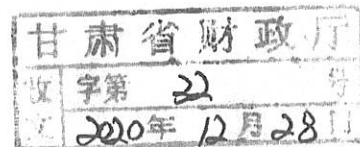 甘肃省财政厅
收字第 22 号
文 2020年 12月 28日